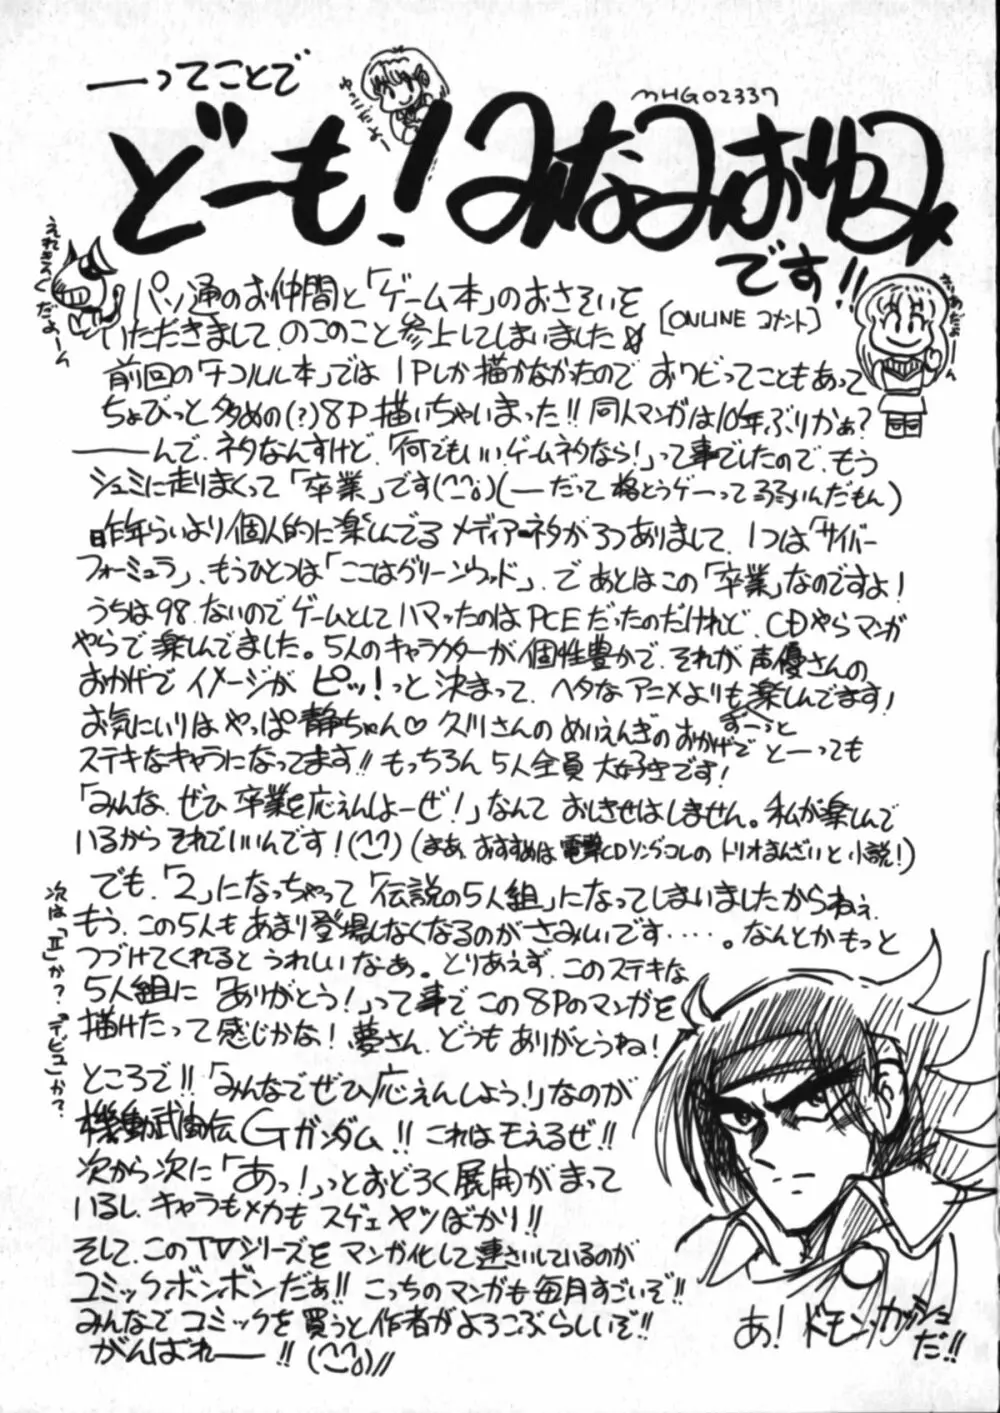 ――ってことで
ゆっこだよー
MHG02337
どーも!みなみおゆみ
です!!
えれきんぐだよーん
パソ通のお仲間と「ゲーム本」のおさそいを
いただきまして、のこのこと参上してしまいました
[ONLINE コメント]
前回の「ナコルル本」では1Pしか描かなかったので おワビってこともあって
ちょびっと多めの(?)8P描いちゃいまった!!同人マンガは10年ぶりかぁ?
――んで、ネタなんすけど、「何でもいい、ゲームネタなら!」って事でしたので、もう
シュミに走りまくって「卒業」です(^^;)(―だって格とうゲーって弱いんだもん)
昨年らいより個人的に楽しんでる メディアネタが3つありまして、1つは「サイバー
フォーミュラ」、もうひとつは「ここはグリーンウッド」、で あとはこの「卒業」なのですよ!
うちは98、ないのでゲームとしてハマったのはPCEだったのだけれど、CDやらマンガ
やらで楽しんでました。5人のキャラクターが個性豊かで、それが声優さんの
おかげでイメージがピッ!っと決まって、ヘタなアニメよりもずーっと楽しんでます!
お気にいりはやっぱ静ちゃん♡ 久川さんのめいえんぎのおかげでとーっても
ステキなキャラになってます!!もっちろん5人全員大好きです!
「みんな、ぜひ卒業を応えんしよーぜ!」なんて おしきせはしません。私が楽しんで
いるからそれでいいんです!(^^)(まあ、おすすめは電撃CDソングコレのトリオまんざいと小説!)
でも、「2」になっちゃって「伝説の5人組」になってしまいましたからねぇ、
もう、この5人もあまり登場しなくなるのがさみしいです‥‥。なんとかもっと
つづけてくれるとうれしいなあ。とりあえず、このステキな
5人組に「ありがとう!」って事でこの8Pのマンガを
描けたって感じかな!夢さん、どうもありがとうね!
次は「Ⅱ」か?「デビュ」か?
ところで!!「みんなでぜひ応えんしよう!」なのが
機動武闘伝Gガンダム!!これはモえるぜ!!
次から次に「あっ!」っとおどろく展開がまって
いるし、キャラもメカもスゲェヤツばかり!!
そして、このTVシリーズをマンガ化して連さいしているのが
コミックボンボンだぁ!!こっちのマンガも毎月すごいぞ!!
みんなでコミックを買うと作者がよろこぶらしいぞ!!
がんばれ――!!(^^;)//
あ!ドモン・カッシュ
だ!!